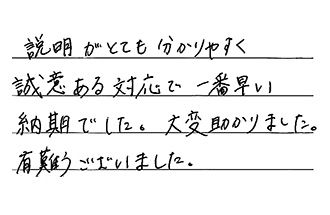 説明がとても分かりやすく
誠意ある対応で一番早い
納期でした。大変助かりました。
有難うございました。